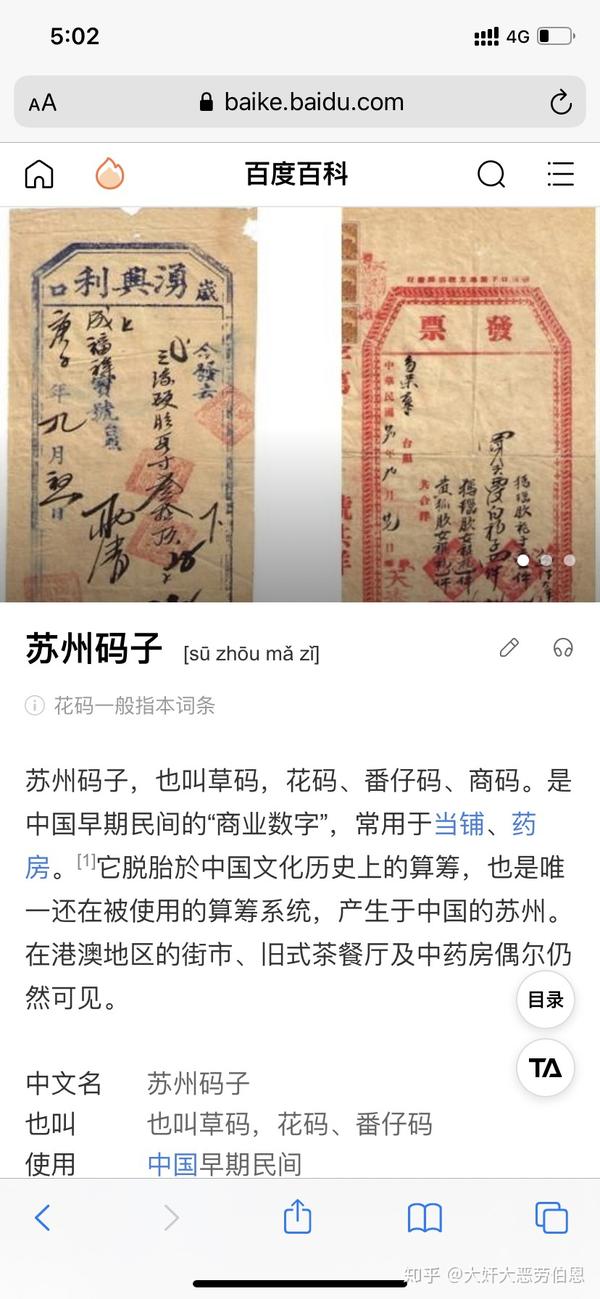 5:02
4G
AA
baike.baidu.com
百度百科
口利興湧歲
今發去
上
成福祥寶號
庚子年九月
日
發票
中華民國
年
月
日
台照
共合洋
苏州码子 [sū zhōu mǎ zǐ]
花码一般指本词条
苏州码子，也叫草码，花码、番仔码、商码。是
中国早期民间的“商业数字”，常用于当铺、药
房。[1]它脱胎於中国文化历史上的算筹，也是唯
一还在被使用的算筹系统，产生于中国的苏州。
在港澳地区的街市、旧式茶餐厅及中药房偶尔仍
然可见。
目录
中文名 苏州码子
也叫 也叫草码，花码、番仔码
使用 中国早期民间
知乎 @大奸大恶劳伯恩